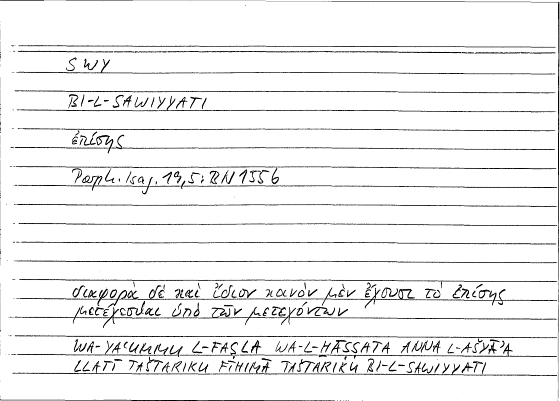 SWY
BI-L-SAWIYYATI
ἐπίσης
Porph. Isag. 19,5: BN 155b
διαφορὰ δὲ καὶ ἴδιον κοινὸν μὲν ἔχουσι τὸ ἐπίσης
μετέχεσθαι ὑπὸ τῶν μετεχόντων
WA-YAʿUMMU L-FAṢLA WA-L-ḪĀṢṢATA ANNA L-AŠYĀʾA
LLATĪ TAŠTARIKU FĪHIMĀ TAŠTARIKU BI-L-SAWIYYATI